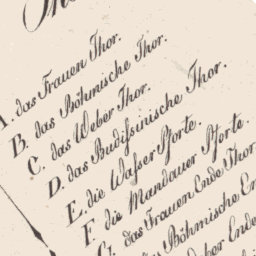 A. das Frauen Thor.
B. das Böhmische Thor.
C. das Weber Thor.
D. das Budißinische Thor.
E. die Waßer Pforte.
F. die Mandauer Pforte.
G. das Frauen Ende Thor
das Böhmische En
Weber Ende